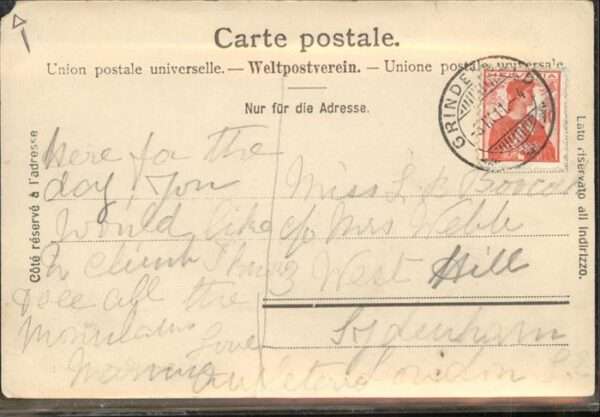 Carte postale.
Union postale universelle. — Weltpostverein. — Unione postale universale.
Nur für die Adresse.
Côté réservé à l'adresse
Lato riservato all indirizzo.
GRINDELWALD
HELVETIA
Here for the
day, You
would like
to climb
& see all the
Mountains
Love
Miss L. R.
c/o Mrs Webb
3 West Hill
Sydenham
London S.E.